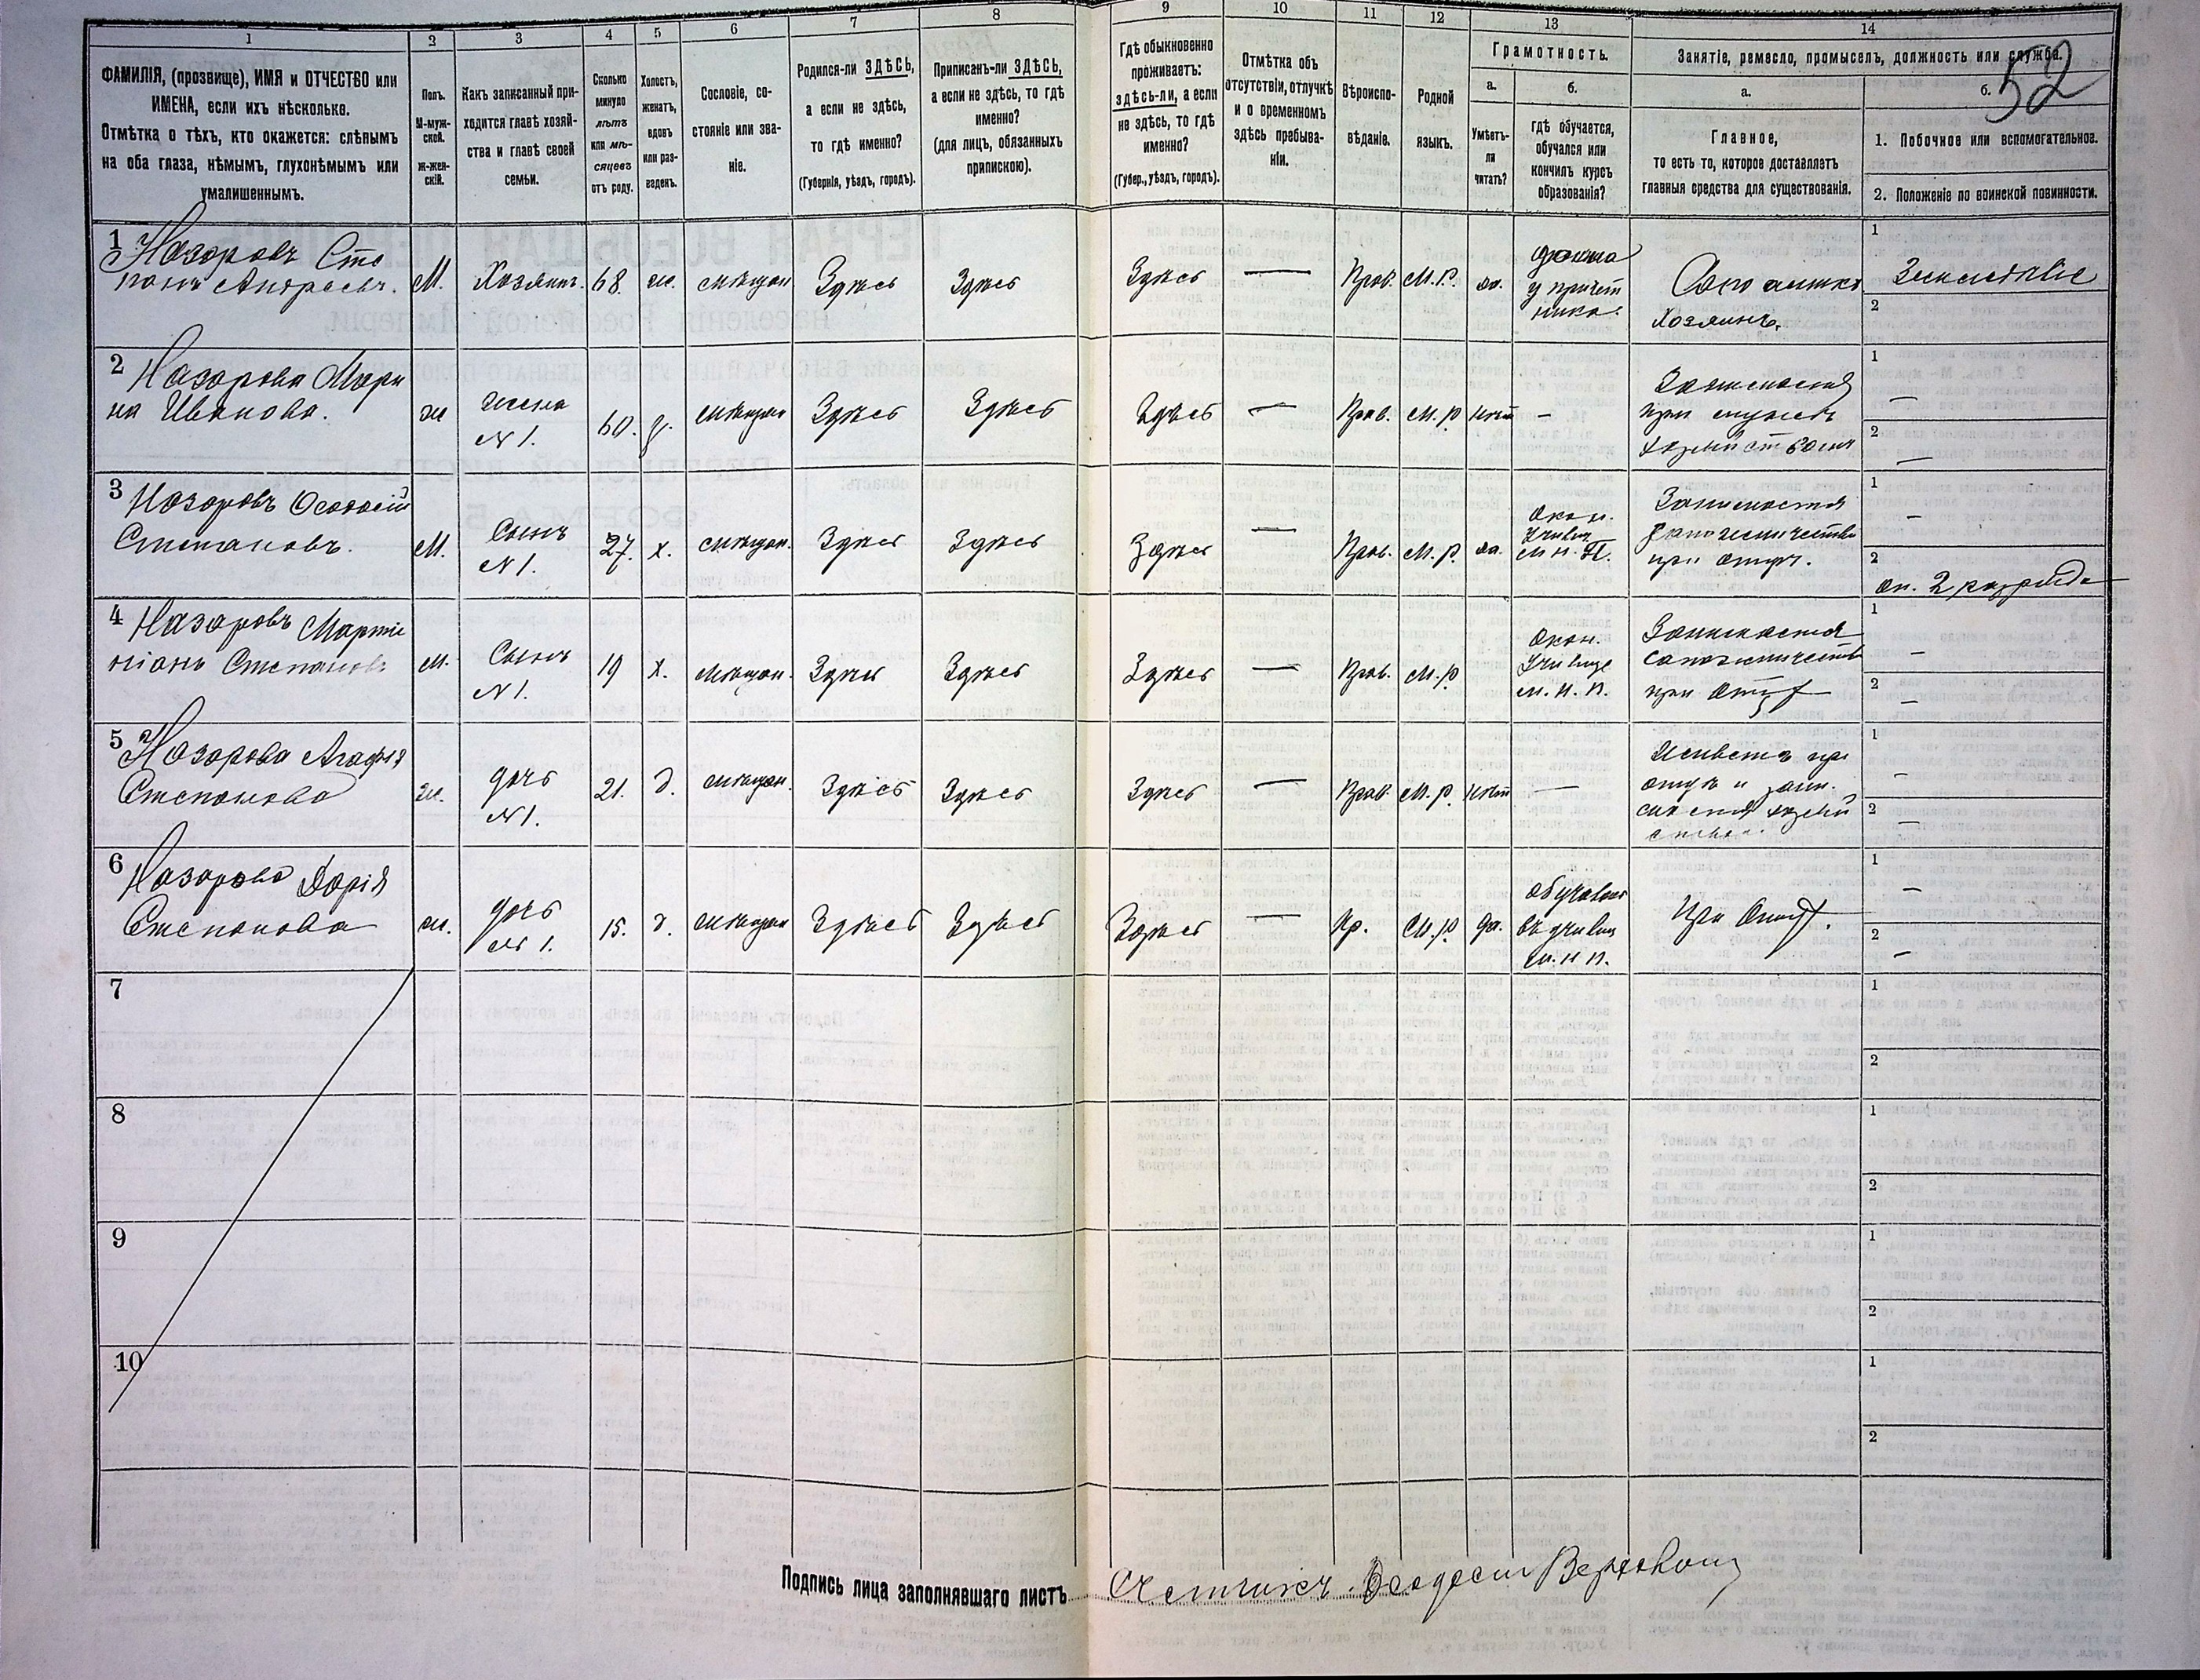 1 2 3 4 5 6 7 8 9 10 11 12 13 14
52
ФАМИЛІЯ, (прозвище), ИМЯ и ОТЧЕСТВО или
ИМЕНА, если ихъ нѣсколько.
Отмѣтка о тѣхъ, кто окажется: слѣпымъ
на оба глаза, нѣмымъ, глухонѣмымъ или
умалишеннымъ.
Полъ.
М-муж-
ской.
ж-жен-
скій.
Какъ записанный при-
ходится главѣ хозяй-
ства и главѣ своей
семьи.
Сколько
минуло
лѣтъ
или мѣ-
сяцевъ
отъ роду.
Холостъ,
женатъ,
вдовъ
или раз-
веденъ.
Сословіе, со-
стояніе или зва-
ніе.
Родился-ли ЗДѢСЬ,
а если не здѣсь,
то гдѣ именно?
(Губернія, уѣздъ, городъ).
Приписанъ-ли ЗДѢСЬ,
а если не здѣсь, то гдѣ
именно?
(для лицъ, обязанныхъ
припискою).
Гдѣ обыкновенно
проживаетъ:
здѣсь-ли, а если
не здѣсь, то гдѣ
именно?
(Губер., уѣздъ, городъ).
Отмѣтка объ
отсутствіи, отлучкѣ
и о временномъ
здѣсь пребыва-
ніи.
Вѣроиспо-
вѣданіе.
Родной
языкъ.
Грамотность.
а.
Умѣетъ-
ли
читать?
б.
гдѣ обучается,
обучался или
кончилъ курсъ
образованія?
Занятіе, ремесло, промыселъ, должность или служба.
а.
Главное,
то есть то, которое доставляетъ
главныя средства для существованія.
б.
1. Побочное или вспомогательное.
2. Положеніе по воинской повинности.
1 Назоровъ Сте
панъ Андреевъ. М. Хозяинъ. 68. ж. мѣщан Здѣсь Здѣсь Здѣсь — Прав. М.Р. да.
дома
у причет
ника.
Хозяинъ.
1 Земледѣліе
2
2 Назорова Мари
на Иванова. ж жена
№ 1. 60. мѣщан Здѣсь Здѣсь Здѣсь — Прав. М.р нѣт —
Занимается
при мужѣ
хозяйством
1 —
2 —
3 Назоровъ
Степановъ. М. Сынъ
№ 1. 27. х. мѣщан. Здѣсь Здѣсь Здѣсь — Прав. М.р. да.
Окон.
Училищ
м. н. П.
Занимается
при отцѣ.
1 —
2 оп. 2 разряда
4 Назоровъ Марти
ніанъ Степановъ м. Сынъ
№ 1. 19 х. мѣщан. Здѣсь Здѣсь Здѣсь — Прав. М.р
Окон.
Училище
м. н. п.
Занимается
сапожничеств
при отцѣ
1 —
2 —
5 Назорова Агафія
Степанова ж. дочь
№ 1. 21. д. мѣщан. Здѣсь Здѣсь Здѣсь — Прав. М.р. нѣт —
Живетъ при
отцѣ и зани-
мается хозяй
ством
1 —
2 —
6 Назорова Дарія
Степанова ж. дочь
№ 1. 15. д. мѣщан Здѣсь Здѣсь Здѣсь — Пр. М.р да.
обучалась
въ училищ
м. н п.
При Отцѣ.
1 —
2 —
7 1
2
8 1
2
9 1
2
10 1
2
Подпись лица заполнявшаго листъ Счетчикъ